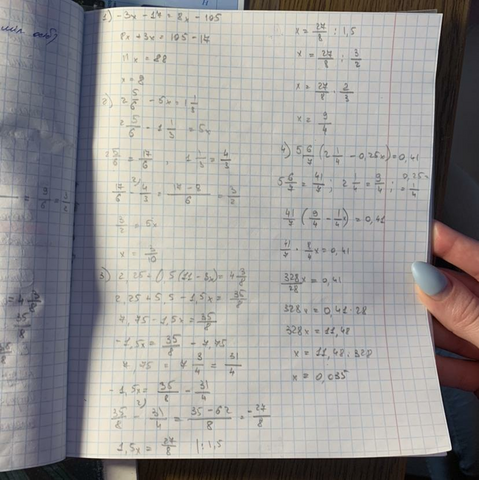 1) -3x - 17 = 8x - 105
8x + 3x = 105 - 17
11x = 88
x = 8
2) 2 5/6 - 5x = 1 1/3
2 5/6 - 1 1/3 = 5x
2 5/6 = 17/6 ; 1 1/3 = 4/3
17/6 - 4/3 = (17 - 8)/6 = 3/2
3/2 = 5x
x = 3/10
3) 2,25 + 0,5(11 - 3x) = 4 3/8
2,25 + 5,5 - 1,5x = 35/8
7,75 - 1,5x = 35/8
-1,5x = 35/8 - 7,75
7,75 = 7 3/4 = 31/4
-1,5x = 35/8 - 31/4
35/8 - 31/4 = (35 - 62)/8 = -27/8
1,5x = 27/8 | : 1,5
x = 27/8 : 1,5
x = 27/8 : 3/2
x = 27/8 · 2/3
x = 9/4
4) 5 6/7 (2 1/4 - 0,25x) = 0,41
5 6/7 = 41/7 ; 2 1/4 = 9/4 ; 0,25x = 1/4
41/7 (9/4 - 1/4 x) = 0,41
41/7 · 8/4 x = 0,41
328x/28 = 0,41
328x = 0,41 · 28
328x = 11,48
x = 11,48 : 328
x = 0,035